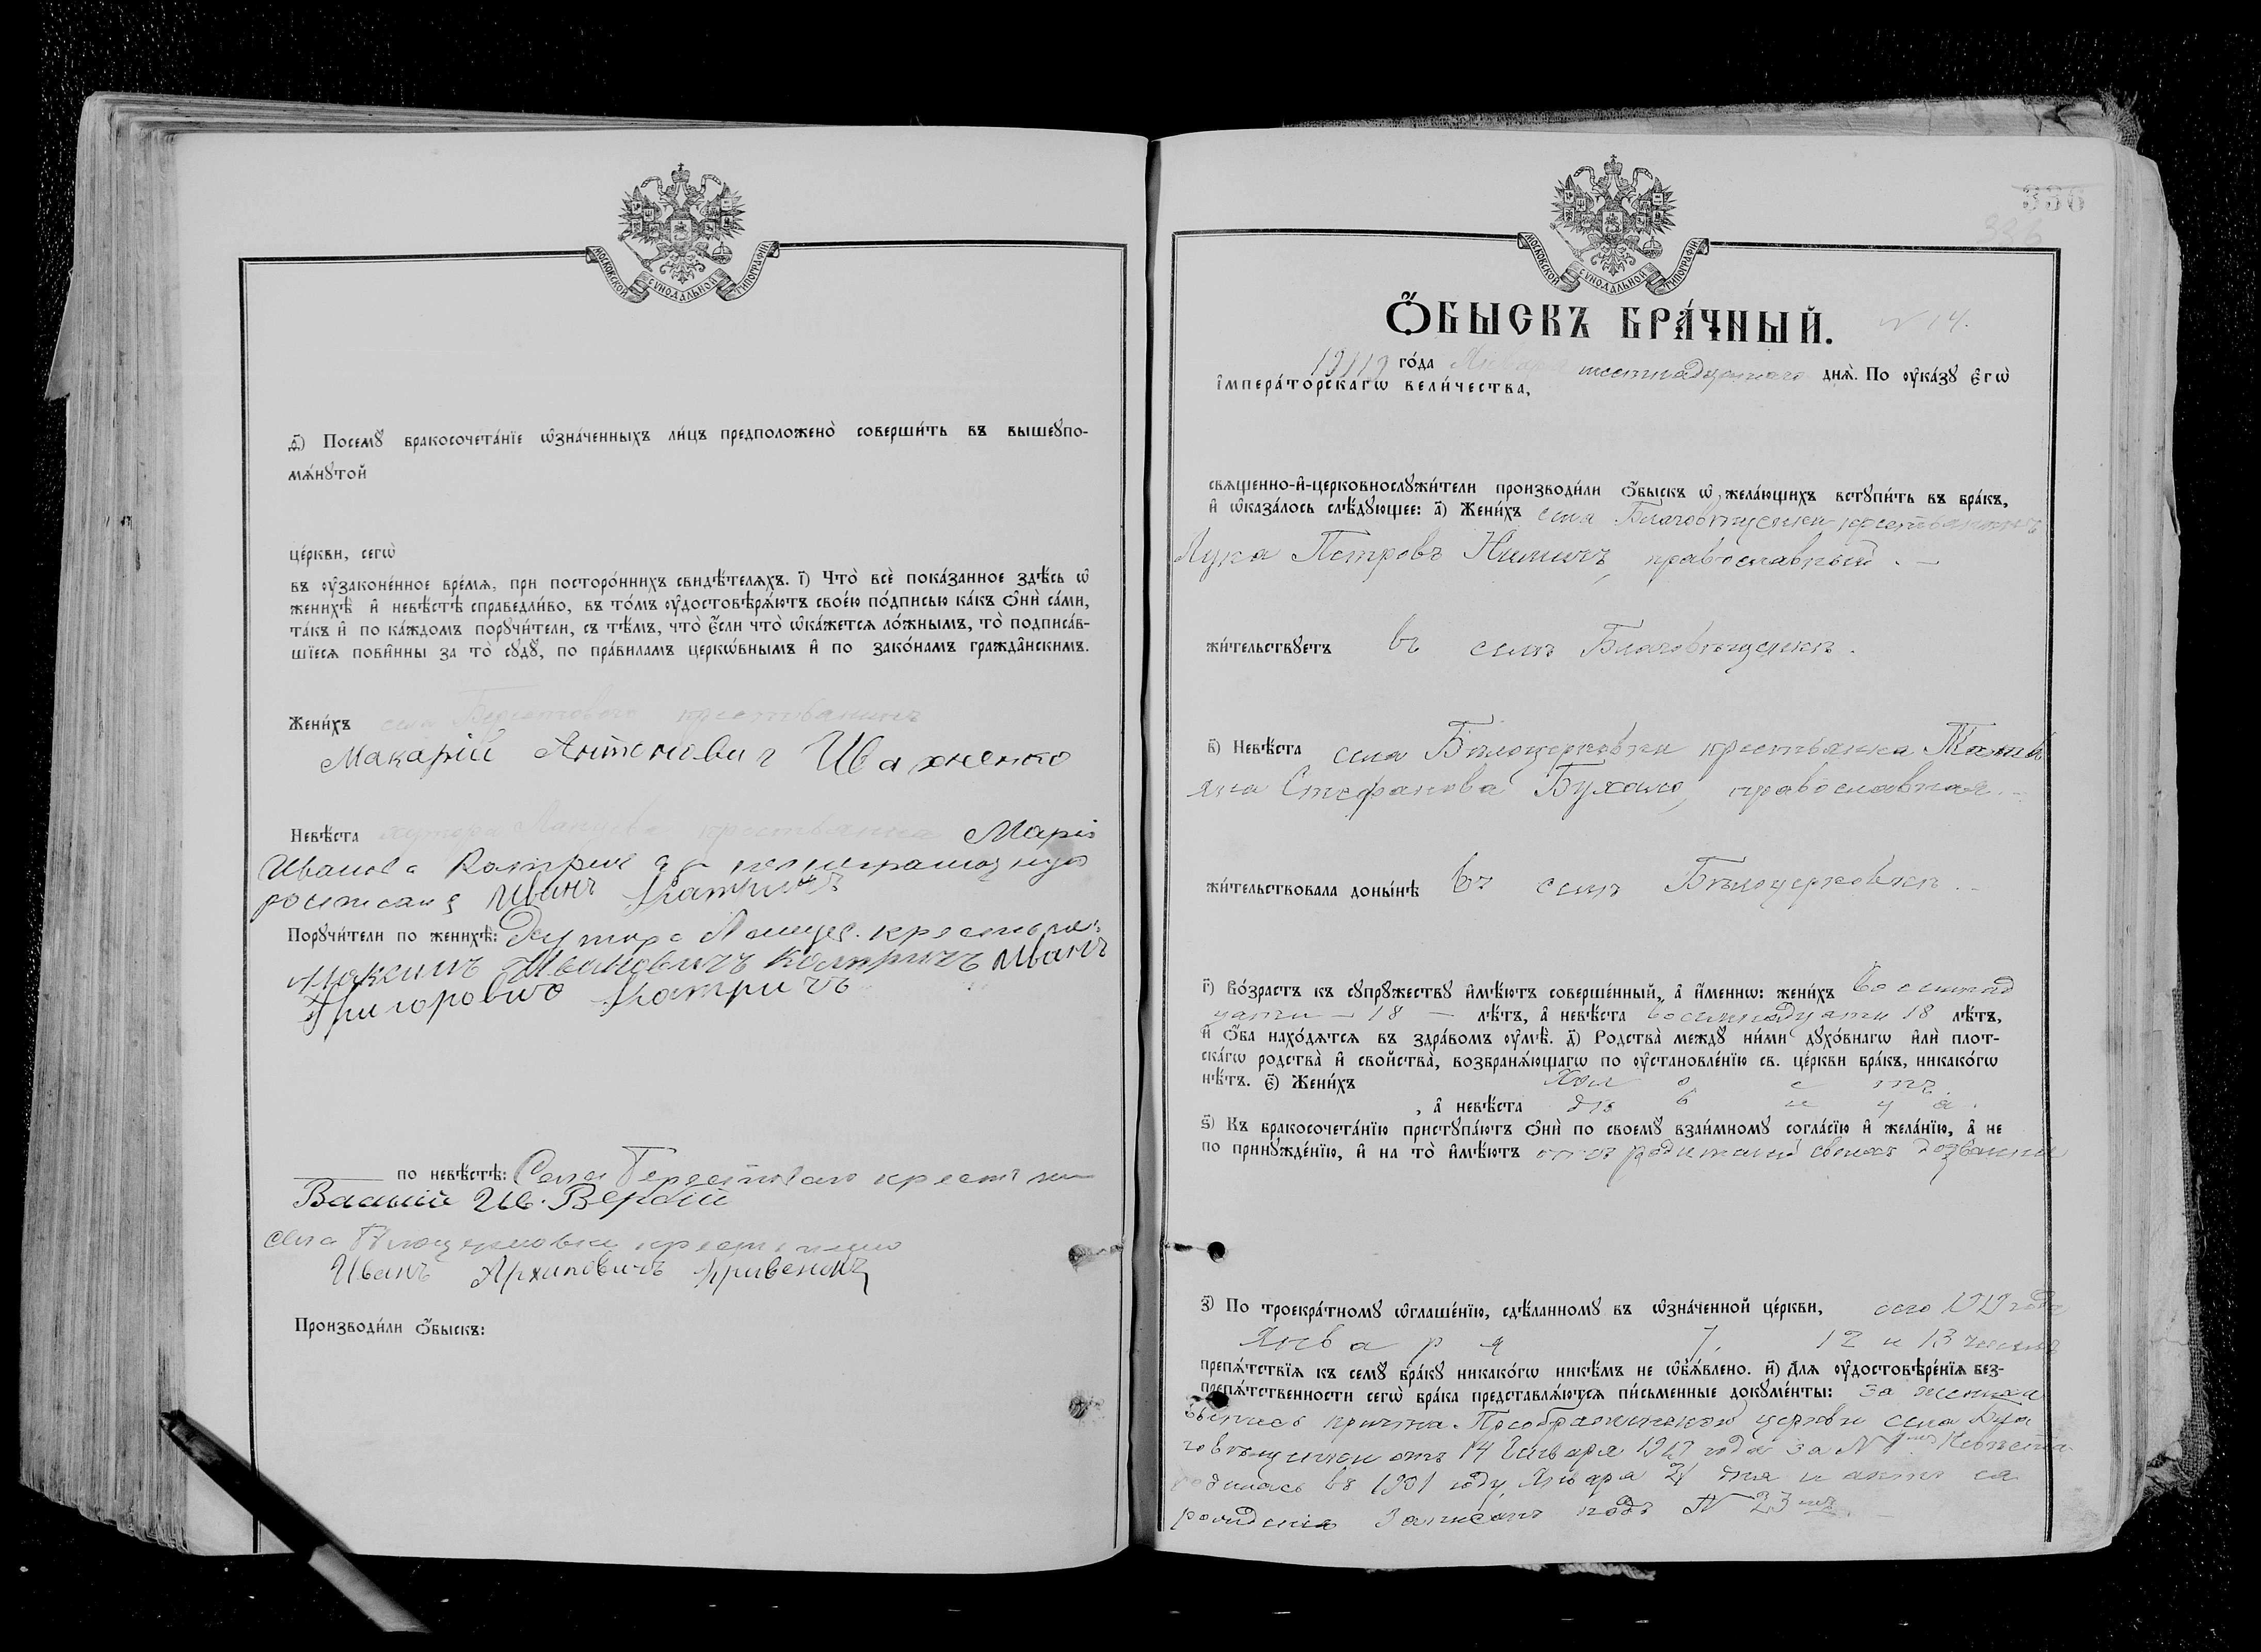 МОСКОВСКОЙ СѴНОДАЛЬНОЙ ТИПОГРАФІИ
д҃і) Посемꙋ̀ бракосочета́нїе ѡ҆зна́ченныхъ ли́цъ предположено̀ соверши́ть въ вышеꙋпо-
мѧ́нꙋтой
це́ркви, сегѡ̀
въ ᲂу҆законе́нное вре́мѧ, при посторо́ннихъ свидѣ́телѧхъ. і҃) Что̀ всѐ пока́занное здѣ́сь ѡ҆
женихѣ̀ и҆ невѣ́стѣ справедли́во, въ то́мъ ᲂу҆достовѣрѧ́ютъ свое́ю по́дписью ка́къ ѻ҆нѝ са́ми,
та́къ и҆ по ка́ждомъ порꙋчи́тели, съ тѣ́мъ, что̀ є҆́сли что̀ ѡ҆ка́жетсѧ ло́жнымъ, то̀ подписа́в-
шїесѧ пови́нны за то̀ сꙋдꙋ̀, по пра́виламъ церкѡ́внымъ и҆ по зако́намъ гражда̑нскимъ.
Жени́хъ села Берестоваго крестьянинъ
Макарій Антонович Ивахненко
Невѣ́ста хутора крестьянка Марія
Иванова Катрич а за неграмотную
росписався Иванъ Катричъ
Порꙋчи́тели по женихѣ̀: Хутора крестьян.
Максимъ Ивановичъ Катричъ Иванъ
Григоровичъ Катричъ
по невѣ́стѣ: Села Берестоваго крестьянин
Василій Ив. Вербій
села Бѣлоцерковки крестьянин
Иванъ Архиповичъ Кривенокъ
Производи́ли ѻ҆́быскъ:
МОСКОВСКОЙ СѴНОДАЛЬНОЙ ТИПОГРАФІИ
336
336
Ѻ҆́БЫСКЪ БРА́ЧНЫЙ. N 14.
1919 го́да Января шестнадцатаго днѧ̀. По ᲂу҆ка́зꙋ є҆гѡ̀
і҆мпера́торскагѡ вели́чества,
свѧщенно-и҆-церковнослꙋжи́тели производи́ли ѻ҆́быскъ ѡ҆ жела́ющихъ встꙋпи́ть въ бра́къ,
и҆ ѡ҆каза́лось слѣ́дꙋющее: а҃) Жени́хъ села Благовѣщенки крестьянинъ
Лука Петровъ Нимичъ, православный. —
жи́тельствꙋетъ въ селѣ Благовѣщенкѣ.
в҃) Невѣ́ста села Бѣлоцерковки крестьянка Татiа
яна Стефанова Бухало, православная. —
жи́тельствовала доны́нѣ въ селѣ Бѣлоцерковкѣ. —
г҃) Во́зрастъ къ сꙋпрꙋ́жествꙋ и҆мѣ́ютъ соверше́нный, а҆ и҆́меннѡ: жени́хъ восемнад
цати — 18 — лѣ́тъ, а҆ невѣ́ста восемнадцати 18 лѣ́тъ,
и҆ ѻ҆́ба нахо́дѧтсѧ въ здра́вомъ ᲂу҆мѣ̀. д҃) Родства̀ междꙋ̀ ни́ми дꙋхо́внагѡ и҆лѝ плот-
ска́гѡ родства̀ и҆ свойства̀, возбранѧ́ющагѡ по ᲂу҆становле́нїю св. це́ркви бра́къ, никако́гѡ
нѣ́тъ. є҃) Жени́хъ холостъ
, а҆ невѣ́ста дѣвица.
ѕ҃) Къ бракосочета́нїю пристꙋпа́ютъ ѻ҆нѝ по своемꙋ̀ взаи́мномꙋ согла́сїю и҆ жела́нїю, а҆ не
по принꙋжде́нїю, и҆ на то̀ и҆мѣ́ютъ отъ родителей своихъ дозволеніе
з҃) По троекра́тномꙋ ѡ҆глаше́нїю, сдѣ́ланномꙋ въ ѡ҆зна́ченной це́ркви, сего 1919 года
Января 7, 12 и 13 числа
препѧ́тствїѧ къ семꙋ̀ бра́кꙋ никако́гѡ никѣ́мъ не ѡ҆б̾ѧ́влено. и҃) Длѧ ᲂу҆достовѣре́нїѧ без-
препѧ́тственности сегѡ̀ бра́ка представлѧ́ютсѧ пи́сьменные докꙋме́нты: за жениха
выпись причта Преображенской церкви села Бла
говѣщенки отъ 14 Января 1919 года за N Невѣста
родилась въ 1901 году, Января 21 дня и актъ ея
рожденія записанъ подъ N 23